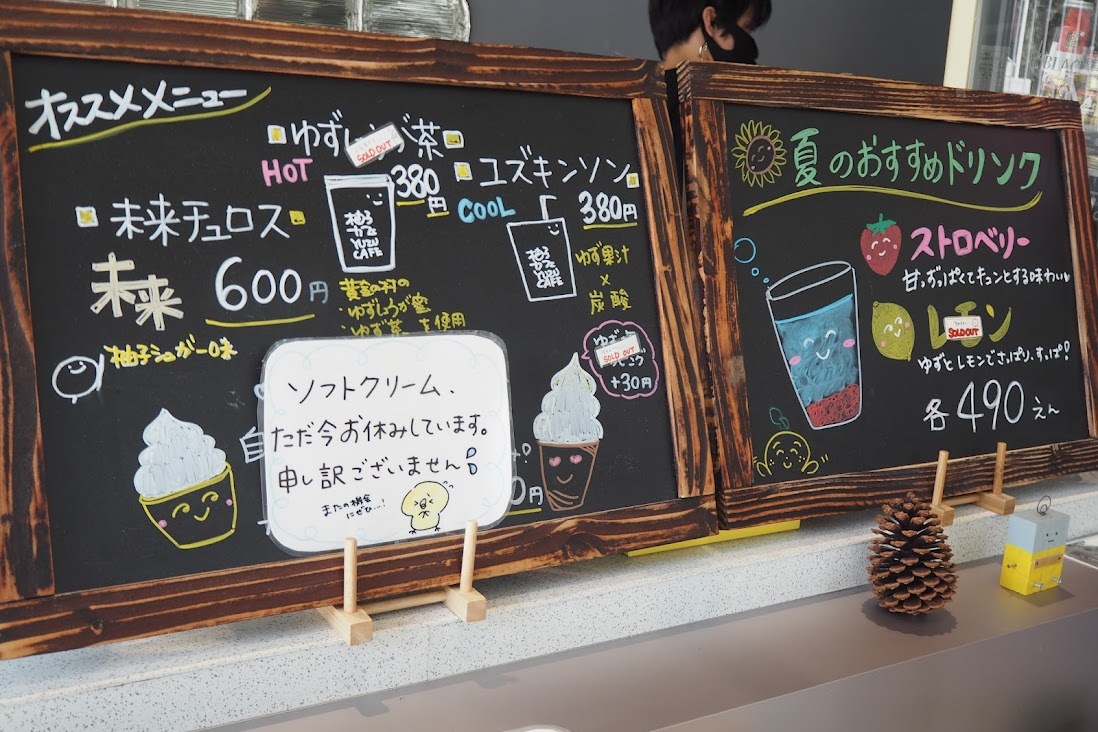 オススメメニュー
ゆず
茶
SOLD OUT
HOT
380
円
柚子
かふぇ
YUZU
CAFE
ユズキンソン
COOL
380円
YUZU
CAFE
ゆず果汁
×
炭酸
未来チュロス
未来
600円
柚子シュガー味
黄金の村の
・ゆずしょうが蜜
・ゆず茶 を使用
ゆず
SOLD OUT
+30円
ソフトクリーム、
ただ今お休みしています。
申し訳ございません
またの機会
にぜひ…!
0円
夏のおすすめドリンク
ストロベリー
甘ずっぱくてキュンとする味わい
レモン
SOLD OUT
ゆずとレモンでさっぱり、すっぱ!
各490えん